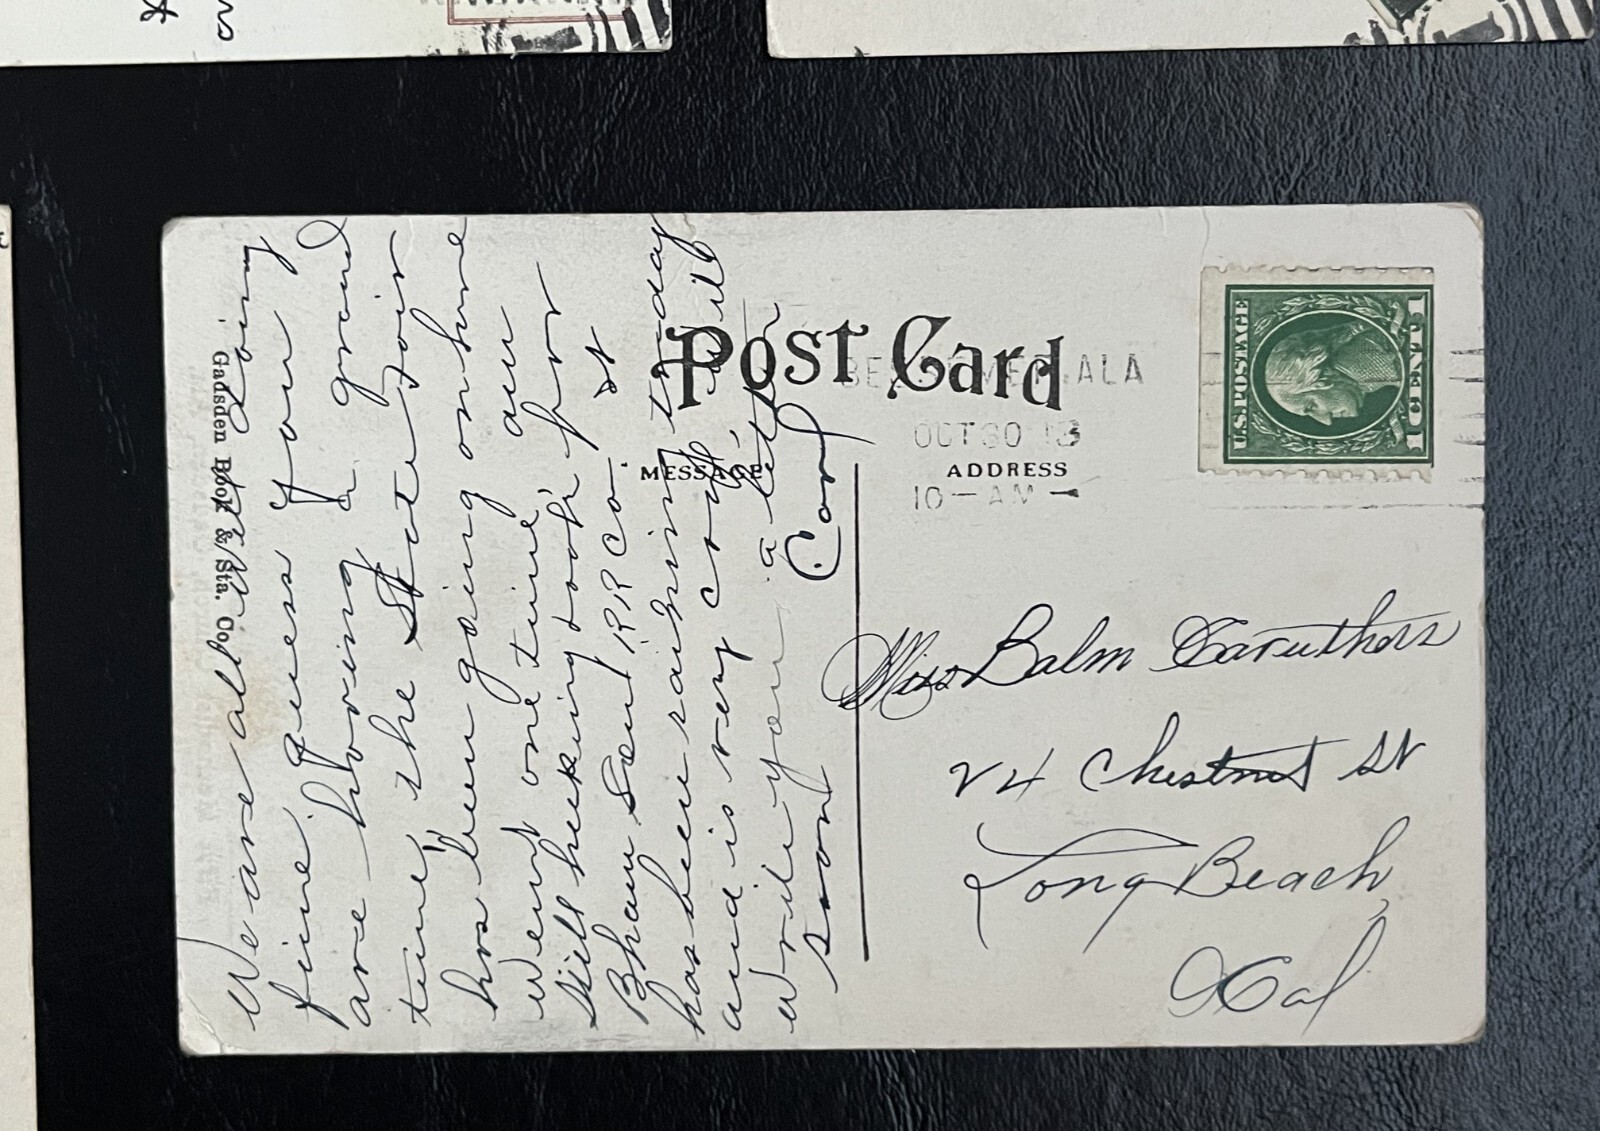 Post Card
MESSAGE
ADDRESS
Gadsden Book & Sta. Co.
We are all well doing
fine, guess you
are having a grand
time, the State Fair
has been going on here
went one time, am
still keeping books for
Bham Sand RR Co. It
has been raining to-day
and is very cool, will
write you a letter
soon
Carl
ALA
OCT 30 13
10 — AM —
U.S. POSTAGE
1 CENT 1
Miss Balm Caruthers
24 Chestnut St
Long Beach
Cal